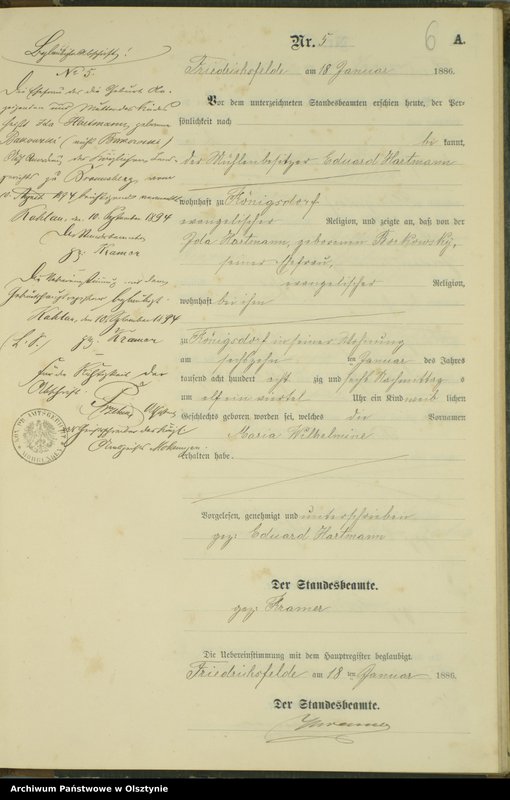 Nr. 5
6
A.
Friedrichsfelde am 18 Januar 1886.
Vor dem unterzeichneten Standesbeamten erschien heute, der Per-
sönlichkeit nach
be kannt,
der Mühlenbesitzer Eduard Hartmann
wohnhaft zu Königsdorf
evangelischer Religion, und zeigte an, daß von der
Ida Hartmann, geborenen
seiner Ehefrau,
evangelischer Religion,
wohnhaft bei ihm
zu Königsdorf in seiner Wohnung
am sechzehn ten Januar des Jahres
tausend acht hundert acht zig und sechs Nachmittag s
um elf ein viertel Uhr ein Kind weib lichen
Geschlechts geboren worden sei, welches die Vornamen
Maria Wilhelmine
erhalten habe.
Vorgelesen, genehmigt und unterschrieben
gez: Eduard Hartmann
Der Standesbeamte.
gez: Kramer
Die Uebereinstimmung mit dem Hauptregister beglaubigt.
Friedrichsfelde am 18 ten Januar 1886.
Der Standesbeamte.
Kramer
Beglaubigte Abschrift!
No 5.
Die Ehefrau des die Geburt An-
zeigenden und Mutter des Kindes
heißt Ida Hartmann, geborene
(nicht
des Königlichen Land-
gerichts zu Braunsberg vom
1894
den 10. September 1894
Der Standesbeamte
gz. Kramer
Die Uebereinstimmung mit dem
beglaubigt.
den 10. September 1894
(L. S.) gz. Kramer
Für die Richtigkeit der
Abschrift.
Archiwum Państwowe w Olsztynie